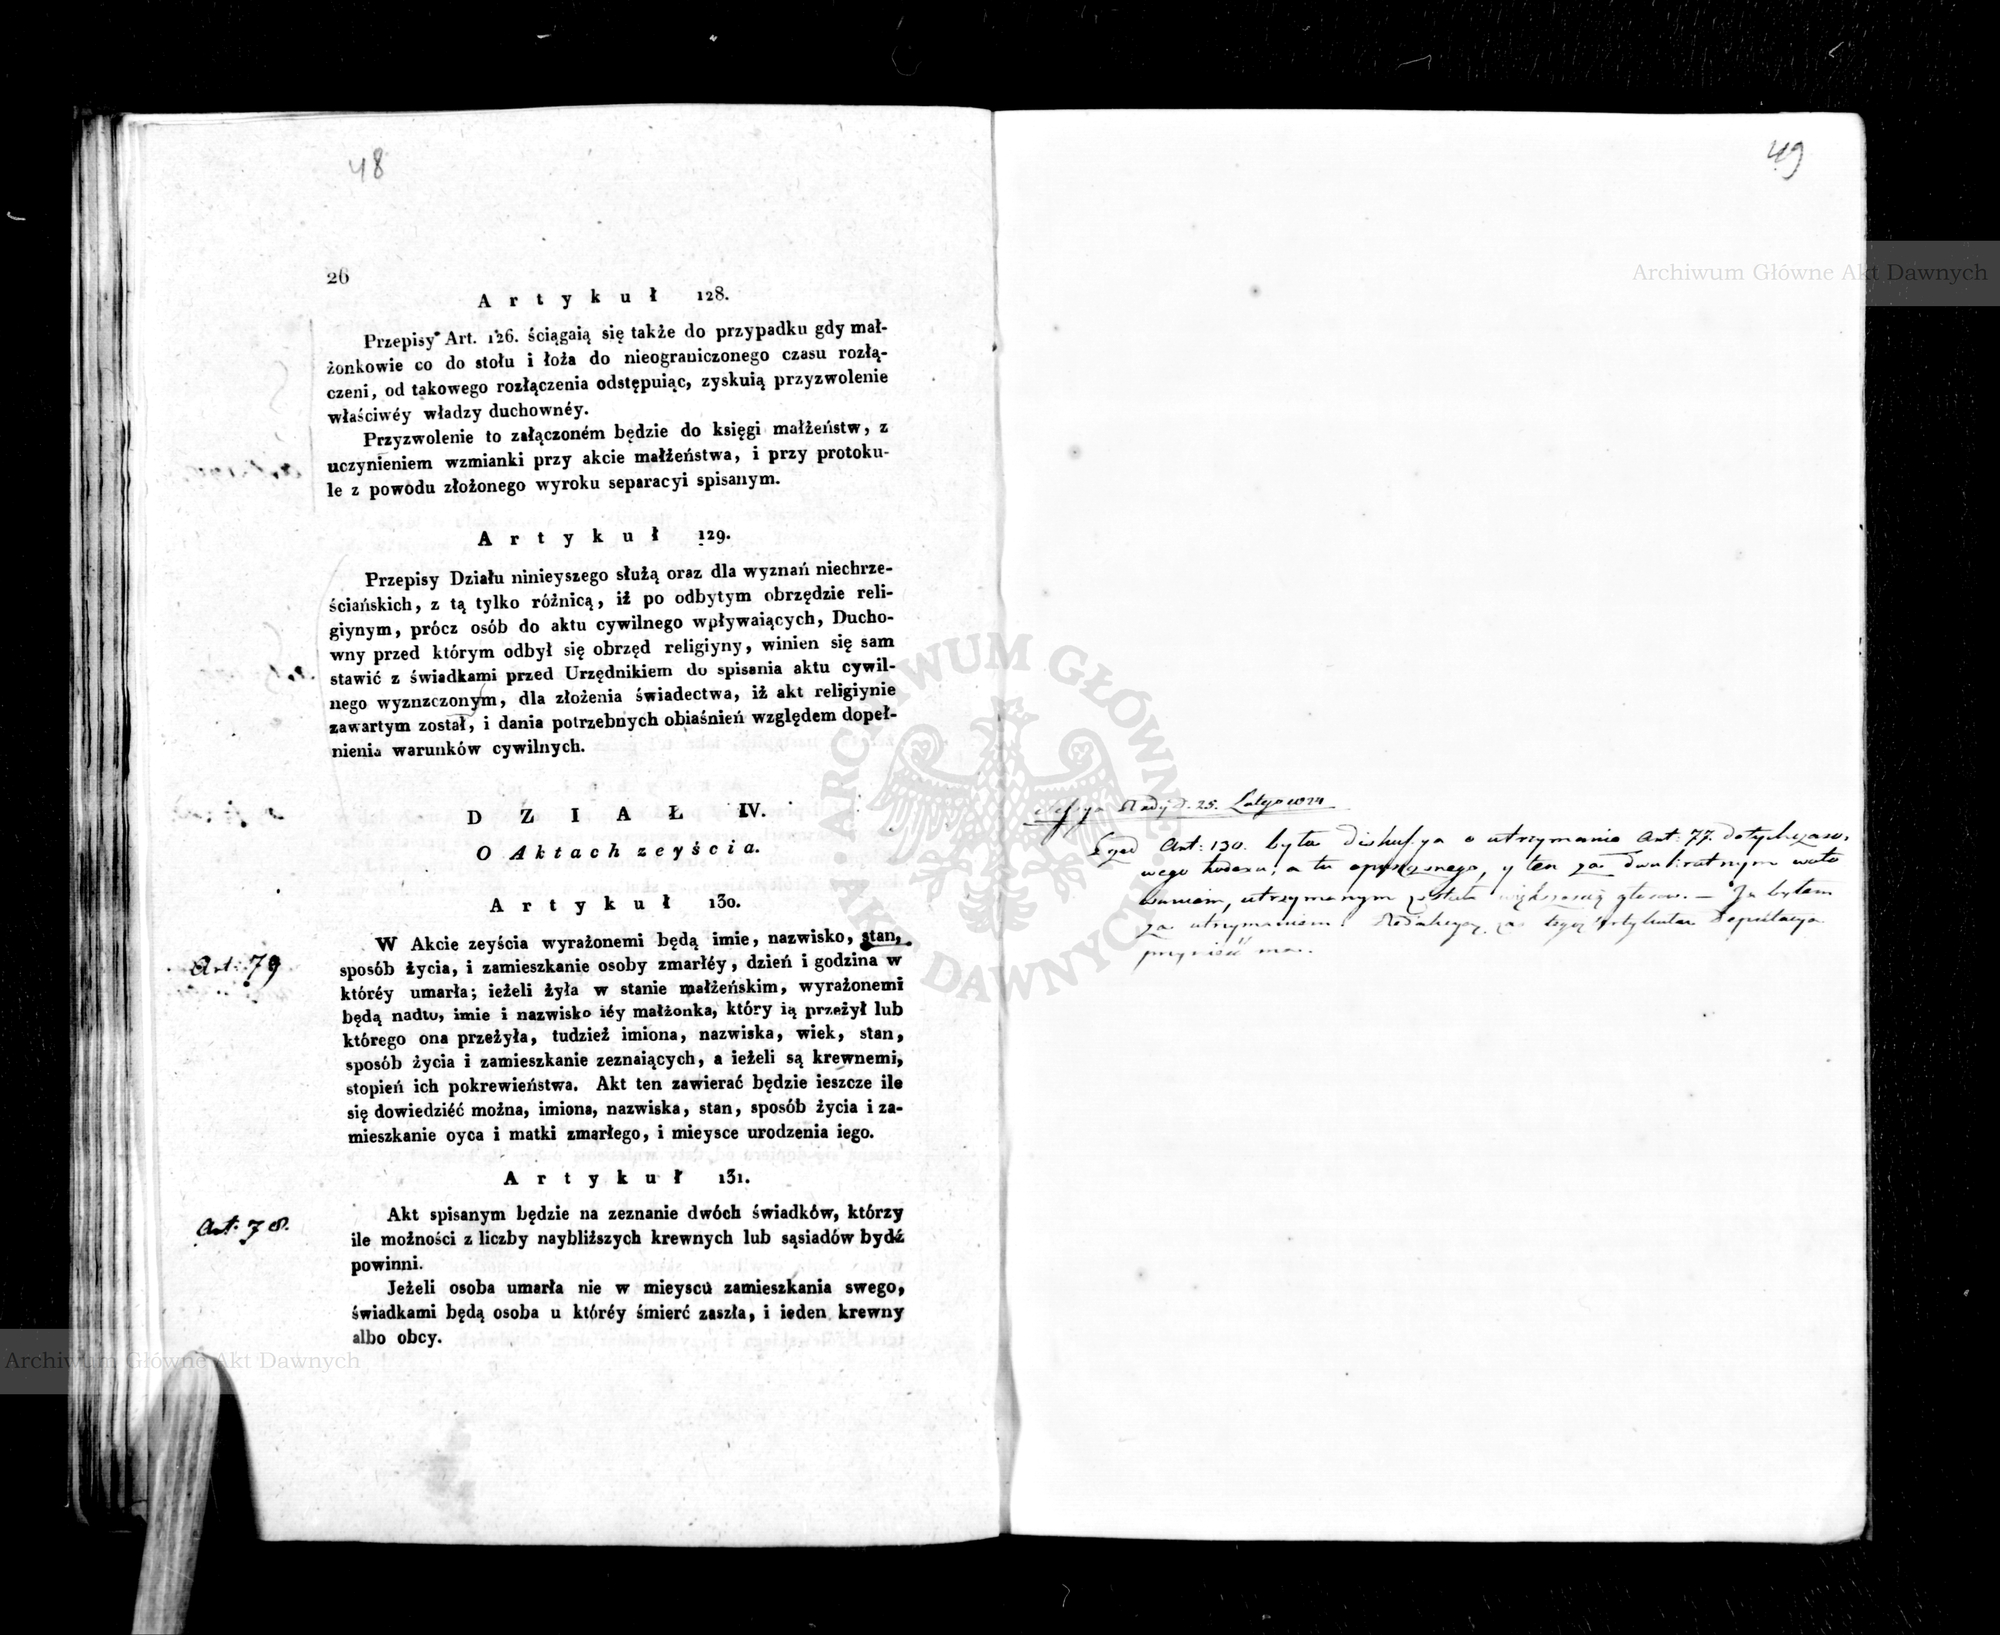 48
26
Artykuł 128.
Przepisy Art. 126. ściągaią się także do przypadku gdy mał-
żonkowie co do stołu i łoża do nieograniczonego czasu rozłą-
czeni, od takowego rozłączenia odstępuiąc, zyskuią przyzwolenie
właściwéy władzy duchownéy.
Przyzwolenie to załączoném będzie do księgi małżeństw, z
uczynieniem wzmianki przy akcie małżeństwa, i przy protoku-
le z powodu złożonego wyroku separacyi spisanym.
Artykuł 129.
Przepisy Działu ninieyszego służą oraz dla wyznań niechrze-
ściańskich, z tą tylko różnicą, iż po odbytym obrzędzie reli-
giynym, prócz osób do aktu cywilnego wpływaiących, Ducho-
wny przed którym odbył się obrzęd religiyny, winien się sam
stawić z świadkami przed Urzędnikiem do spisania aktu cywil-
nego wyznzczonym, dla złożenia świadectwa, iż akt religiynie
zawartym został, i dania potrzebnych obiaśnień względem dopeł-
nienia warunków cywilnych.
DZIAŁ IV.
O Aktach zeyścia.
Artykuł 130.
Art: 79
W Akcie zeyścia wyrażonemi będą imie, nazwisko, stan,
sposób życia, i zamieszkanie osoby zmarłéy, dzień i godzina w
któréy umarła; ieżeli żyła w stanie małżeńskim, wyrażonemi
będą nadto, imie i nazwisko iéy małżonka, który ią przeżył lub
którego ona przeżyła, tudzież imiona, nazwiska, wiek, stan,
sposób życia i zamieszkanie zeznaiących, a ieżeli są krewnemi,
stopień ich pokrewieństwa. Akt ten zawierać będzie ieszcze ile
się dowiedzićć można, imiona, nazwiska, stan, sposób życia i za-
mieszkanie oyca i matki zmarłego, i mieysce urodzenia iego.
Artykuł 131.
Art: 78.
Akt spisanym będzie na zeznanie dwóch świadków, którzy
ile możności z liczby naybliższych krewnych lub sąsiadów bydź
powinni.
Jeżeli osoba umarła nie w mieyscu zamieszkania swego,
świadkami będą osoba u któréy śmierć zaszła, i ieden krewny
albo obcy.
49
Sessya Rady d. 25. Lutego
Przed Art: 130. była diskussya o utrzymanie Art: 77. dotychczaso-
wego kodexu, a tu opuszczonego, y ten za dwukratnym woto
waniem, utrzymanym została większością głosow. – Ja byłem
za utrzymaniem. Redakcyą za tego Artykułu Deputacya
przynieść ma.
Archiwum Główne Akt Dawnych
ARCHIWUM GŁÓWNE AKT DAWNYCH
Archiwum Główne Akt Dawnych